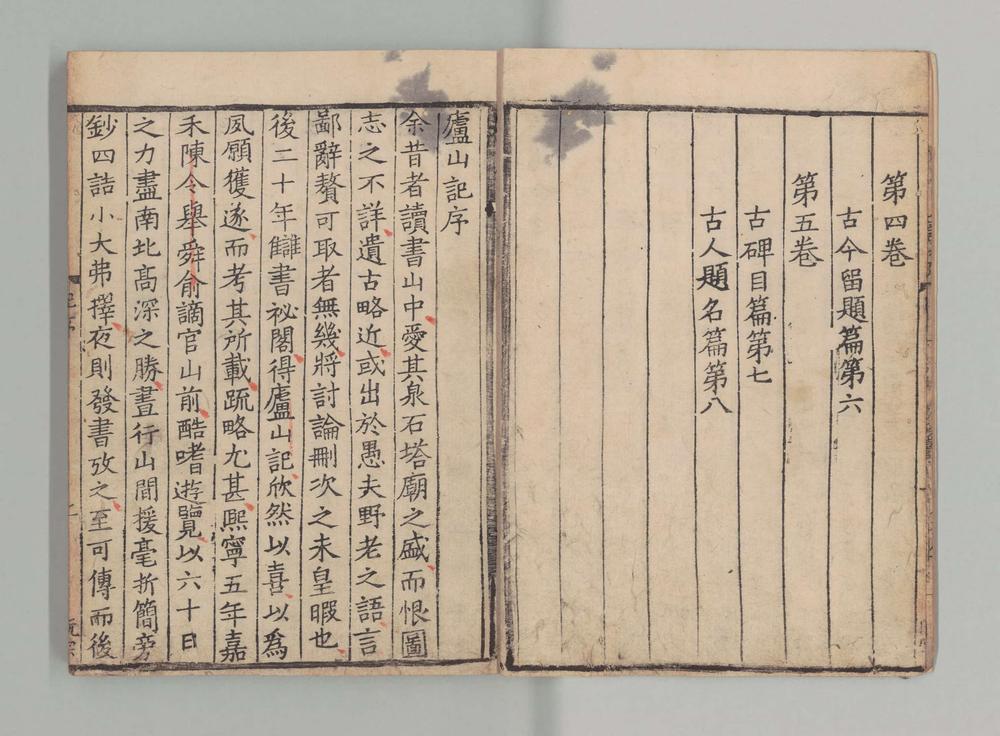 第四卷
古今留題篇第六
第五卷
古碑目篇第七
古人題名篇第八
廬山記序
余昔者讀書山中愛其泉石塔廟之盛而恨圖
志之不詳遺古略近或出於愚夫野老之語言
鄙辭贅可取者無幾將討論刪次之未皇暇也
後二十年讎書祕閣得廬山記欣然以喜以爲
夙願獲遂而考其所載疏略尤甚熙寧五年嘉
禾陳令舉舜俞謫官山前酷嗜遊覽以六十日
之力盡南北髙深之勝晝行山間援毫折簡旁
鈔四詰小大弗擇夜則發書攷之至可傳而後